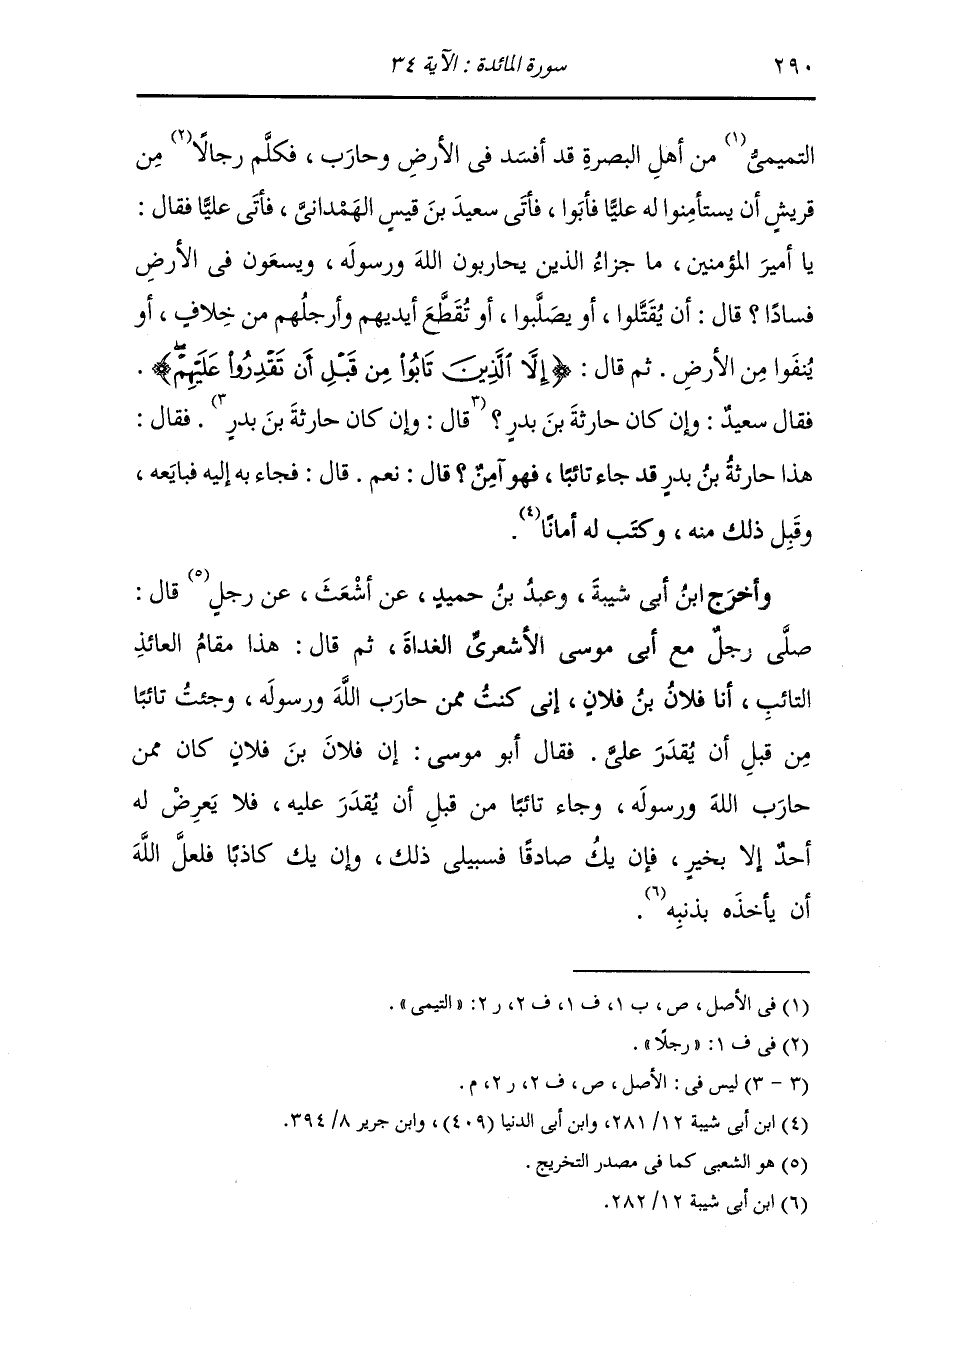 ٢٩٠ سورة المائدة : الآية ٣٤
التميمىُّ(١) من أهلِ البصرةِ قد أفسَد فى الأرضِ وحارَب ، فكلَّم رجالًا(٢) مِن
قريشٍ أن يستأمِنوا له عليًّا فأبَوا ، فأتَى سعيدَ بنَ قيسٍ الهَمْدانىَّ ، فأتَى عليًّا فقال :
يا أميرَ المؤمنين ، ما جزاءُ الذين يحاربون اللهَ ورسولَه ، ويسعَون فى الأرضِ
فسادًا ؟ قال : أن يُقَتَّلوا ، أو يصَلَّبوا ، أو تُقَطَّعَ أيديهم وأرجلُهم من خِلافٍ ، أو
يُنفَوا مِن الأرضِ . ثم قال : ﴿إِلَّا ٱلَّذِينَ تَابُوا۟ مِن قَبْلِ أَن تَقْدِرُوا۟ عَلَيْهِمْۖ﴾ .
فقال سعيدٌ : وإن كان حارثةَ بنَ بدرٍ ؟ (٣قال : وإن كان حارثةَ بنَ بدرٍ٣) . فقال :
هذا حارثةُ بنُ بدرٍ قد جاء تائبًا ، فهو آمِنٌ ؟ قال : نعم . قال : فجاء به إليه فبايَعه ،
وقَبِل ذلك منه ، وكتَب له أمانًا(٤) .
وأخرَج ابنُ أبى شيبةَ ، وعبدُ بنُ حميدٍ ، عن أشْعَثَ ، عن رجلٍ(٥) قال :
صلَّى رجلٌ مع أبى موسى الأشعرىِّ الغداةَ ، ثم قال : هذا مقامُ العائذِ
التائبِ ، أنا فلانُ بنُ فلانٍ ، إنى كنتُ ممن حارَب اللَّهَ ورسولَه ، وجئتُ تائبًا
مِن قبلِ أن يُقدَرَ علىَّ . فقال أبو موسى : إن فلانَ بنَ فلانٍ كان ممن
حارَب اللهَ ورسولَه ، وجاء تائبًا من قبلِ أن يُقدَرَ عليه ، فلا يَعرِضْ له
أحدٌ إلا بخيرٍ ، فإن يكُ صادقًا فسبيلى ذلك ، وإن يك كاذبًا فلعلَّ اللَّهَ
أن يأخذَه بذنبِه(٦) .
(١) فى الأصل ، ص ، ب ١، ف ١، ف ٢، ر ٢: « التيمى » .
(٢) فى ف ١: « رجلًا » .
(٣ - ٣) ليس فى : الأصل ، ص ، ف ٢، ر ٢، م .
(٤) ابن أبى شيبة ١٢/ ٢٨١، وابن أبى الدنيا (٤٠٩) ، وابن جرير ٨/ ٣٩٤.
(٥) هو الشعبى كما فى مصدر التخريج .
(٦) ابن أبى شيبة ١٢/ ٢٨٢.